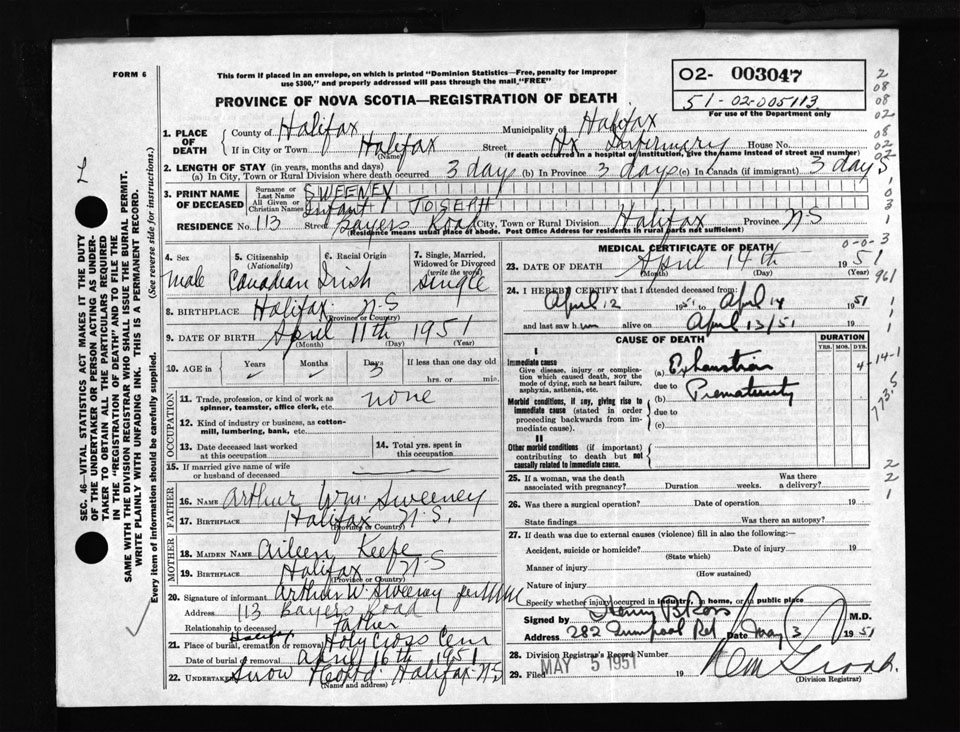 FORM 6
This form if placed in an envelope, on which is printed "Dominion Statistics—Free, penalty for improper
use $300," and properly addressed will pass through the mail "FREE"
02- 003047
51-02-005113
For use of the Department only
PROVINCE OF NOVA SCOTIA—REGISTRATION OF DEATH
1. PLACE OF DEATH County of Halifax Municipality of Halifax
If in City or Town Halifax Street Hx Infirmary House No.
(Name) (If death occurred in a hospital or institution, give the name instead of street and number)
2. LENGTH OF STAY (in years, months and days)
(a) In City, Town or Rural Division where death occurred 3 days (b) In Province 3 days (c) In Canada (if immigrant) 3 days
3. PRINT NAME OF DECEASED Surname or Last Name SWEENEY
All Given or Christian Names Infant JOSEPH
RESIDENCE No. 113 Street Bayers Road City, Town or Rural Division Halifax Province N S
(Residence means usual place of abode. Post Office Address for residents in rural parts not sufficient)
4. Sex male
5. Citizenship (Nationality) Canadian
6. Racial Origin Irish
7. Single, Married, Widowed or Divorced (write the word) single
8. BIRTHPLACE Halifax N-S
(Province or Country)
9. DATE OF BIRTH April 11th 1951
(Month) (Day) (Year)
10. AGE in Years Months Days 3 If less than one day old
hrs. or min.
OCCUPATION
11. Trade, profession, or kind of work as spinner, teamster, office clerk, etc. none
12. Kind of industry or business, as cotton-mill, lumbering, bank, etc.
13. Date deceased last worked at this occupation
14. Total yrs. spent in this occupation
15. If married give name of wife or husband of deceased
FATHER
16. NAME Arthur Wm. Sweeney
17. BIRTHPLACE Halifax N.S.
(Province or Country)
MOTHER
18. MAIDEN NAME Aileen Keefe
19. BIRTHPLACE Halifax N-S
(Province or Country)
20. Signature of informant Arthur W. Sweeney per
Address 113 Bayers Road
Relationship to deceased Father
21. Place of burial, cremation or removal Halifax Holy Cross Cem
Date of burial or removal April 16th 1951
22. Undertaker Snow Halifax N.S
(Name and address)
MEDICAL CERTIFICATE OF DEATH
23. DATE OF DEATH April 14th 1951
(Month) (Day) (Year)
24. I HEREBY CERTIFY that I attended deceased from:
April 12 1951 to April 14 1951
and last saw him alive on April 13/51 19
CAUSE OF DEATH DURATION
YRS. MOS. DYS.
I
Immediate cause
Give disease, injury or complication which caused death, NOT the mode of dying, such as heart failure, asphyxia, asthenia, etc.
(a) Exhaustion 4
due to
Morbid conditions, if any, giving rise to immediate cause (stated in order proceeding backwards from immediate cause).
(b) Prematurity
due to
(c)
II
Other morbid conditions (if important) contributing to death but not causally related to immediate cause.
25. If a woman, was the death associated with pregnancy? Duration weeks. Was there a delivery?
26. Was there a surgical operation? Date of operation 19
State findings Was there an autopsy?
27. If death was due to external causes (violence) fill in also the following:
Accident, suicide or homicide? Date of injury 19
(State which)
Manner of injury
(How sustained)
Nature of injury
Specify whether injury occurred in industry, in home, or in public place
Signed by Henry B Ross M.D.
Address 282 Date May 3 1951
28. Division Registrar's Record Number
29. Filed MAY 5 1951 19
(Division Registrar)
SEC. 46—VITAL STATISTICS ACT MAKES IT THE DUTY
OF THE UNDERTAKER OR PERSON ACTING AS UNDERTAKER
TO OBTAIN ALL THE PARTICULARS REQUIRED
IN THE "REGISTRATION OF DEATH" AND TO FILE THE
SAME WITH THE DIVISION REGISTRAR WHO SHALL ISSUE THE BURIAL PERMIT.
WRITE PLAINLY WITH UNFADING INK. THIS IS A PERMANENT RECORD.
Every item of information should be carefully supplied. (See reverse side for instructions.)
2
08
08
02
08
02
0-0-3
961
14-1
773.5
2
2
1